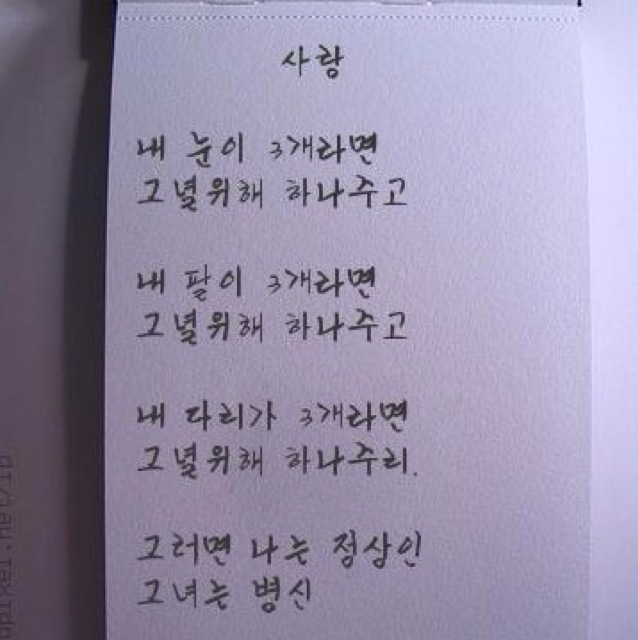 사랑
내 눈이 3개라면
그녈위해 하나주고
내 팔이 3개라면
그녈위해 하나주고
내 다리가 3개라면
그녈위해 하나주리.
그러면 나는 정상인
그녀는 병신